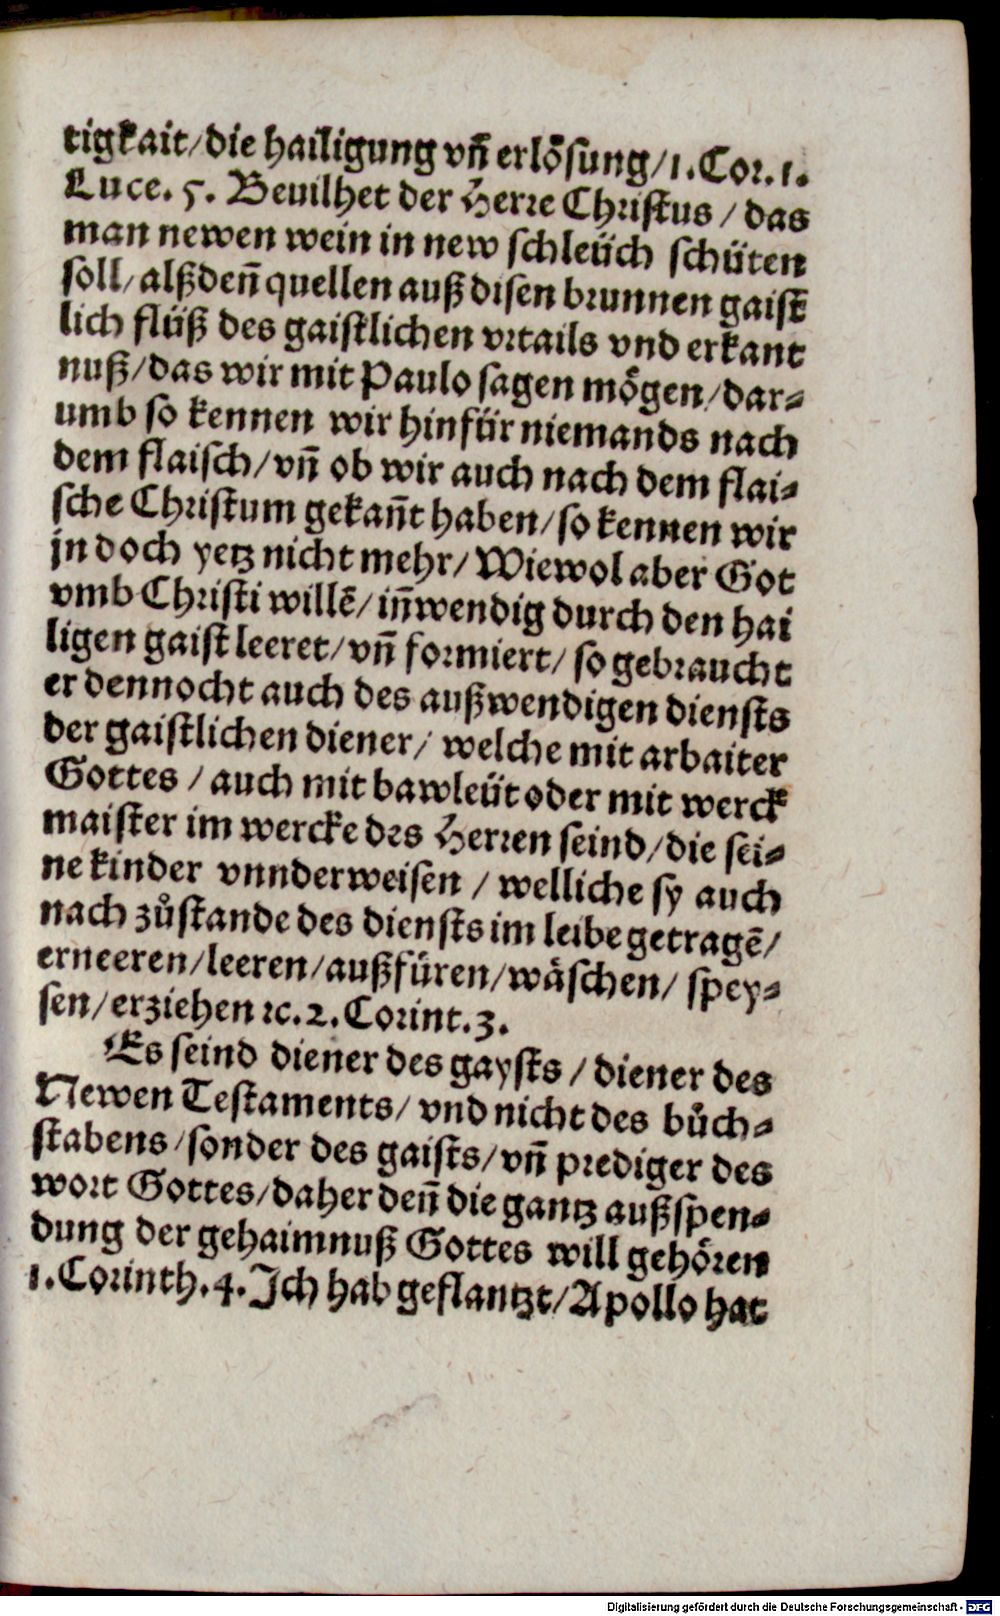 tigkait/die hailigung vn̄ erlösung/1. Cor. 1.
Luce. 5. Beuilhet der Herre Christus / das
man newen wein in new schleüch schüten
soll/ alßden̄ quellen auß disen brunnen gaist
lich flüß des gaistlichen vrtails vnd erkant
nuß/das wir mit Paulo sagen mögen/dar-
umb so kennen wir hinfür niemands nach
dem flaisch/vn̄ ob wir auch nach dem flai-
sche Christum gekan̄t haben/so kennen wir
jn doch yetz nicht mehr/ Wiewol aber Got
vmb Christi willē/ in̄wendig durch den hai
ligen gaist leeret/vn̄ formiert/ so gebraucht
er dennocht auch des außwendigen diensts
der gaistlichen diener/ welche mit arbaiter
Gottes / auch mit bawleüt oder mit werck
maister im wercke des Herren seind/die sei-
ne kinder vnnderweisen / welliche sy auch
nach zůstande des diensts im leibe getragē/
erneeren/leeren/außfüren/wäschen/ spey-
sen/erziehen ꝛc. 2. Corint. 3.
Es seind diener des gaysts / diener des
Newen Testaments/ vnd nicht des bůch-
stabens/sonder des gaists/vn̄ prediger des
wort Gottes/daher den̄ die gantz außspen-
dung der gehaimnuß Gottes will gehören
1. Corinth. 4. Ich hab geflantzt/Apollo hat
Digitalisierung gefördert durch die Deutsche Forschungsgemeinschaft - DFG